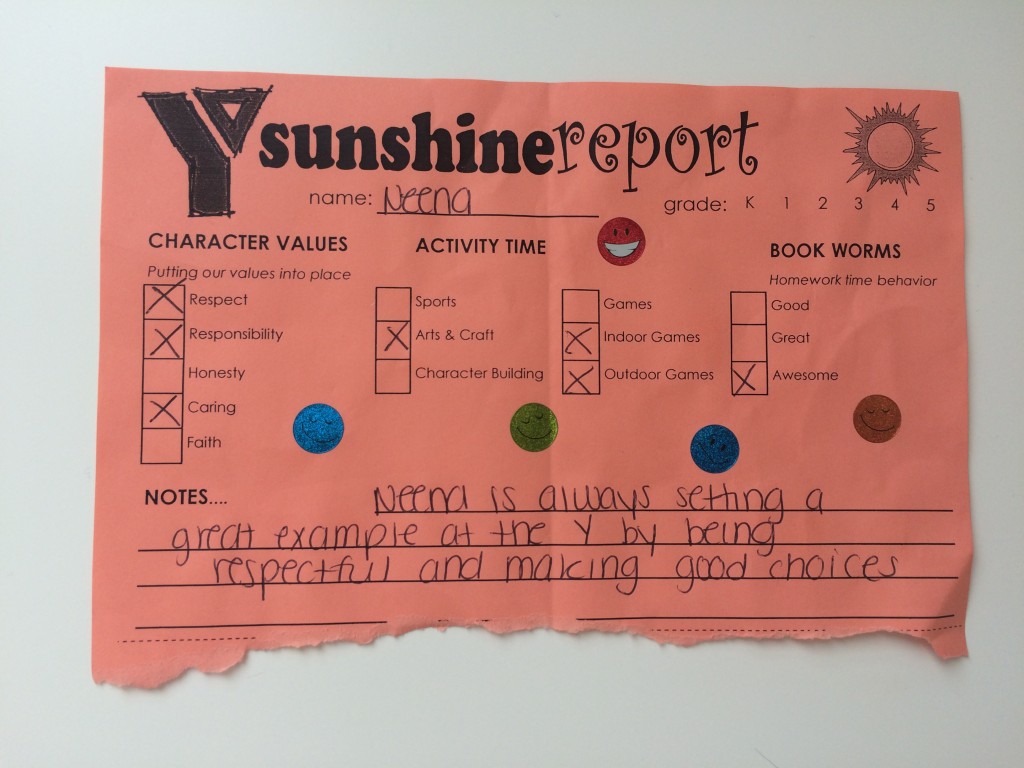 Y sunshine report
name: Neena
grade: K 1 2 3 4 5
CHARACTER VALUES
Putting our values into place
X Respect
X Responsibility
Honesty
X Caring
Faith
ACTIVITY TIME
Sports
X Arts & Craft
Character Building
Games
X Indoor Games
X Outdoor Games
BOOK WORMS
Homework time behavior
Good
Great
X Awesome
NOTES.... Neena is always setting a
great example at the Y by being
respectful and making good choices